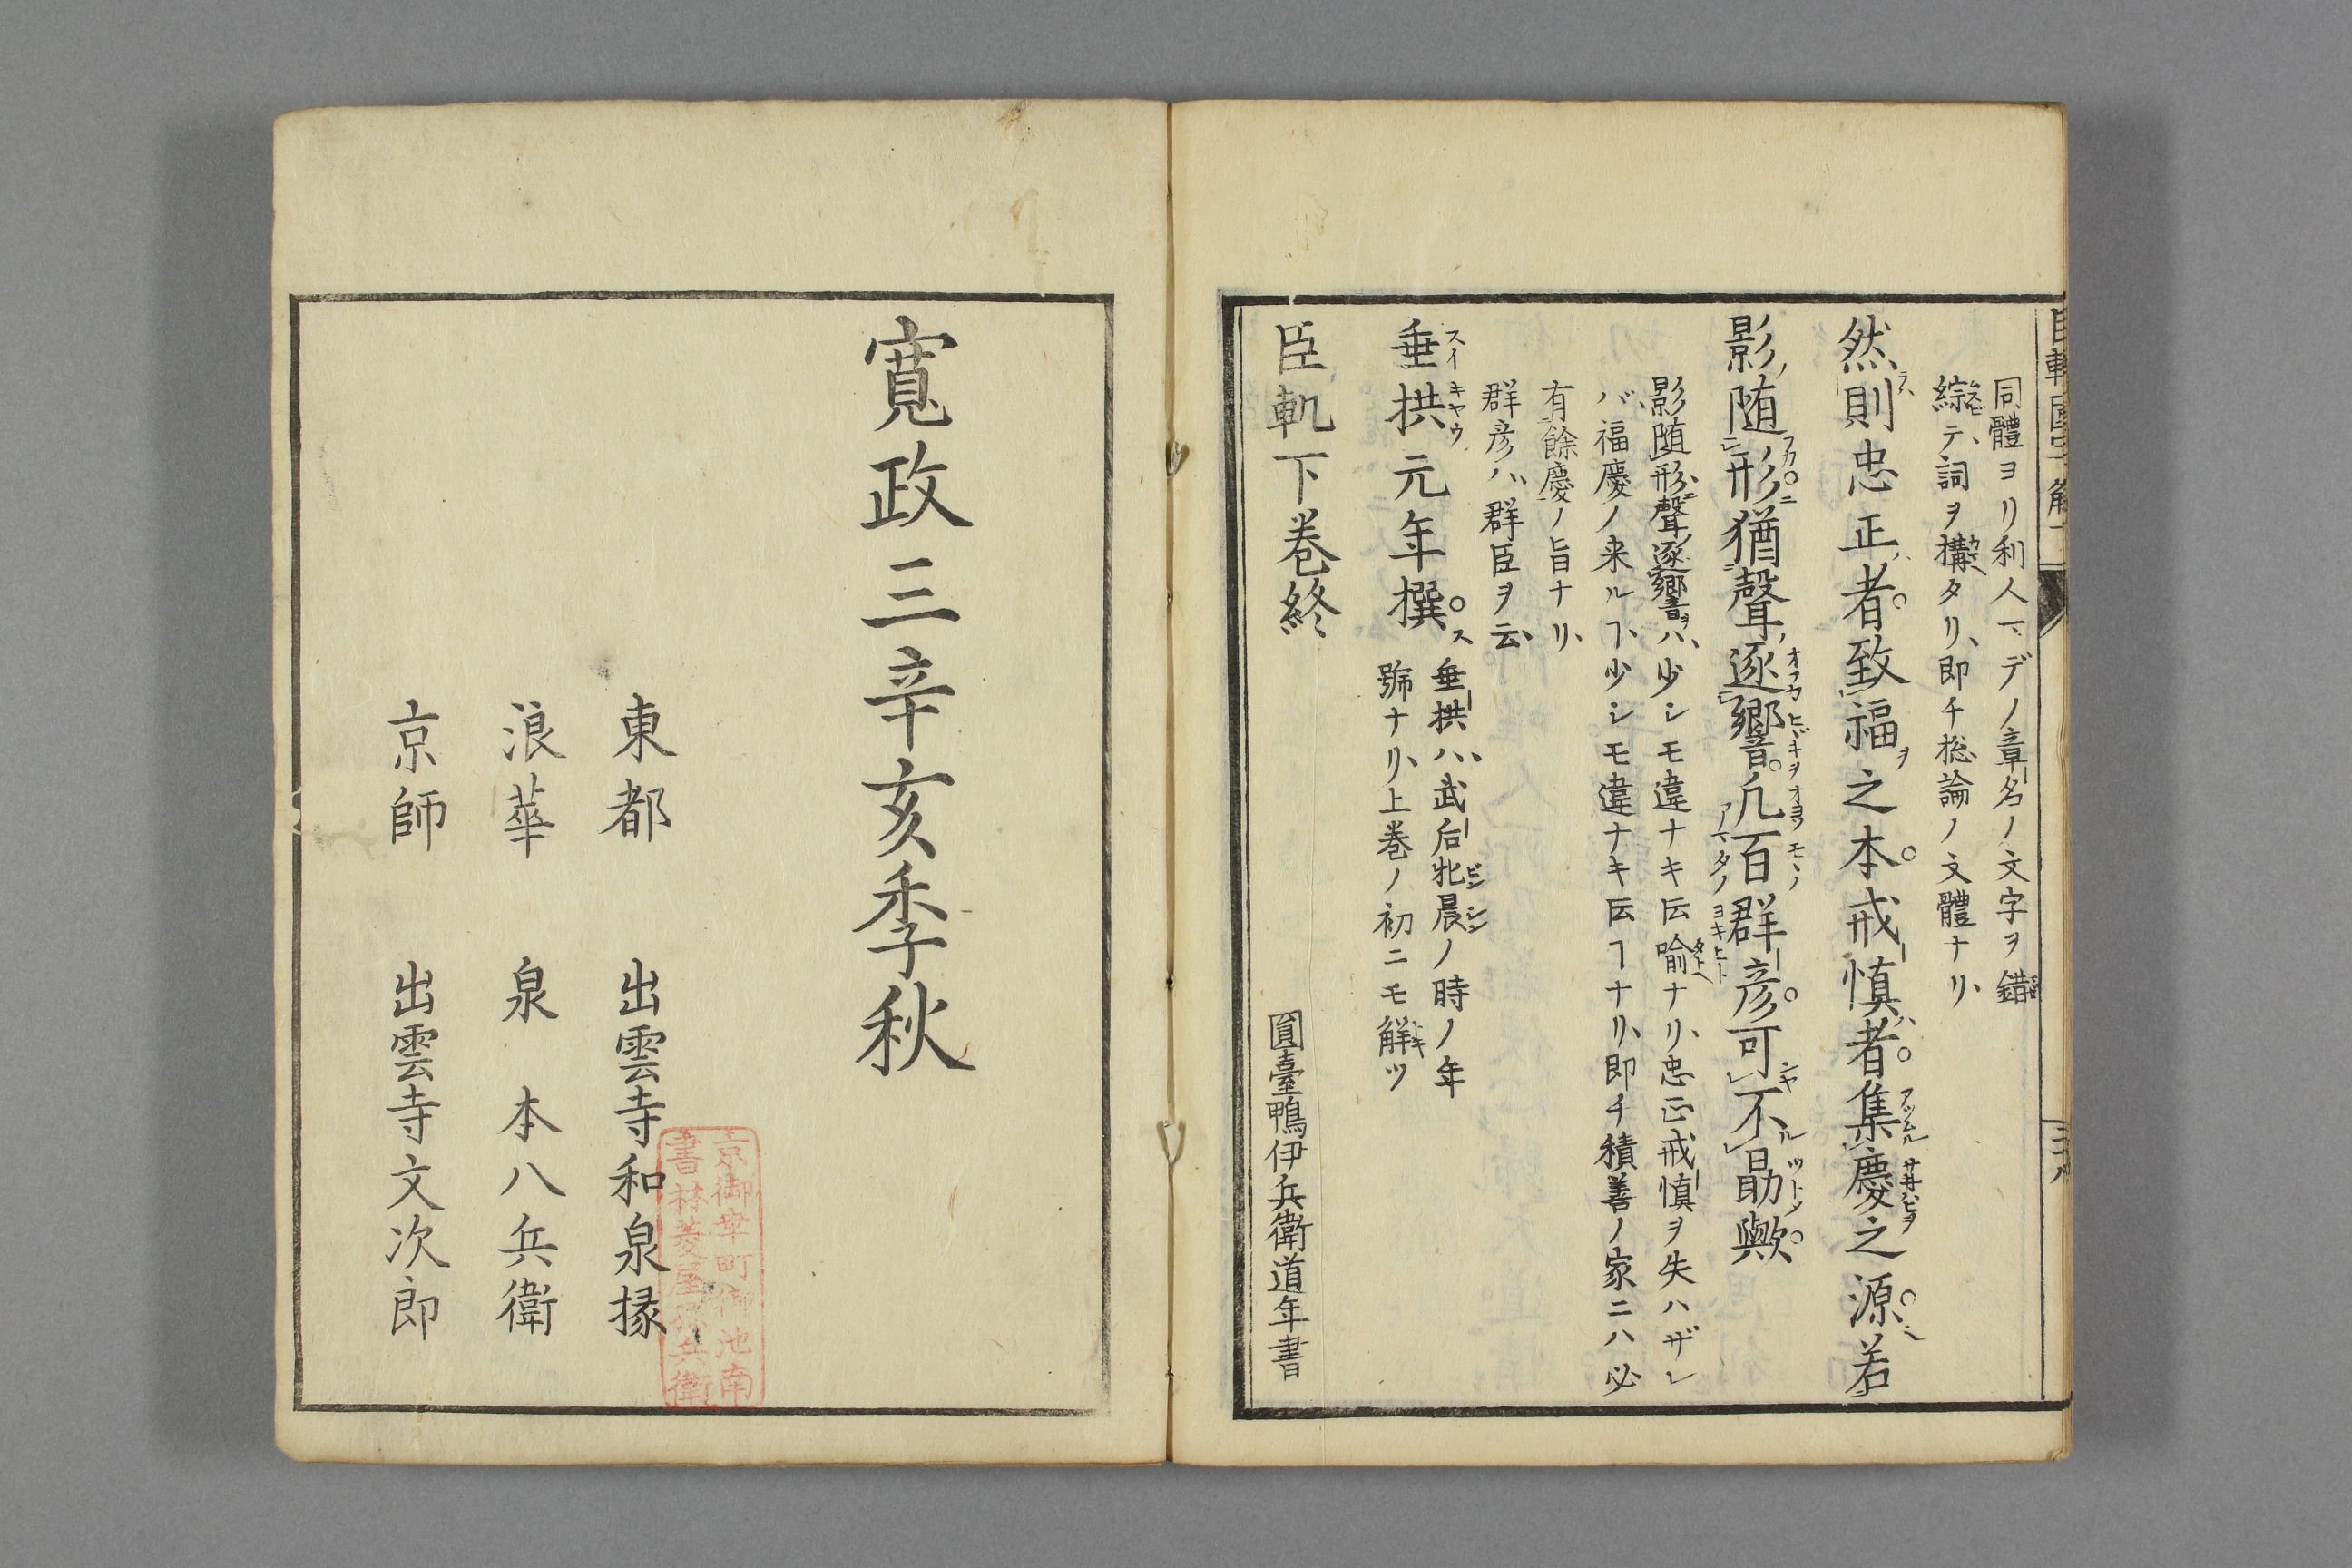 同體ヨリ利人マデノ章名ノ文字ヲ錯
綜テ詞ヲ構タリ、即チ総論ノ文體ナリ、
然則忠正者。致福之本。戒慎者。集慶之源。若
影随形。猶聲逐響。凡百群彦。可不勗歟。
影随形聲逐響ハ、少シモ違ナキ伝喩ナリ、忠正戒慎ヲ失ハザレ
バ、福慶ノ来ルヿ、少シモ違ナキ伝ヿナリ、即チ積善ノ家ニハ必
有餘慶ノ旨ナリ、
群彦ハ、群臣ヲ云、
垂拱元年撰。ス
垂拱ハ、武后牝晨ノ時ノ年
號ナリ、上巻ノ初ニモ解ツ
臣軌下巻終
圓臺鴨伊兵衛道年書
寛政三辛亥季秋
東都 出雲寺和泉掾
浪華 泉本八兵衛
京師 出雲寺文次郎
京御幸町御池南
書林菱屋孫兵衛